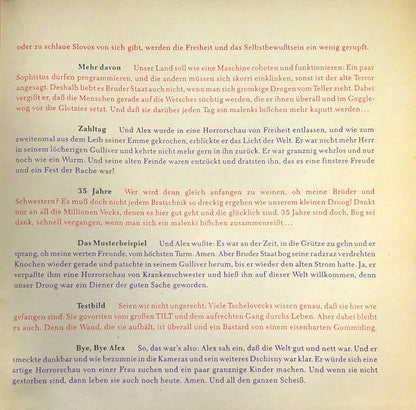 oder zu schlaue Slovos von sich gibt, werden die Freiheit und das Selbstbewußtsein ein wenig gerupft.
Mehr davon Unser Land soll wie eine Maschine roboten und funktionieren: Ein paar
Sophistos dürfen programmieren, und die andern müssen sich skorri einklinken, sonst ist der alte Terror
angesagt. Deshalb liebt es Bruder Staat auch nicht, wenn man sich gromkige Drogen vom Teller zieht. Dabei
vergißt er, daß die Menschen gerade auf die Wetsches süchtig werden, die er ihnen überall und im Goggle-
wog vor die Glotzies setzt. Und daß sie darüber jeden Tag ein malenki bißchen mehr kaputt werden ...
Zahltag Und Alex wurde in eine Horrorschau von Freiheit entlassen, und wie zum
zweitenmal aus dem Leib seiner Emme gekrochen, erblickte er das Licht der Welt. Er war nicht mehr Herr
in seinem löcherigen Gulliver und kehrte nicht mehr gern in ihn zurück. Er war granznig wehrlos und nur
noch wie ein Wurm. Und seine alten Feinde waren entzückt und dratsten ihn, das es eine finstere Freude
und ein Fest der Rache war!
35 Jahre Wer wird denn gleich anfangen zu weinen, oh meine Brüder und
Schwestern? Es muß doch nicht jedem Bratschnik so dreckig ergehen wie unserem kleinen Droog! Denkt
nur an all die Millionen Vecks, denen es hier gut geht und die glücklich sind. 35 Jahre sind doch, Bog sei
dank, schnell vergangen, wenn man sich ein malenki bißchen zusammenreißt...
Das Musterbeispiel Und Alex wußte: Es war an der Zeit, in die Grütze zu gehn und er
sprang, oh meine werten Freunde, vom höchsten Turm. Amen. Aber Bruder Staat bog seine radzraz verdrehten
Knochen wieder gerade und patschte in seinem Gulliver herum, bis er wieder den alten Strom hatte. Ja, er
verpaßte ihm eine Horrorschau von Krankenschwester und hieß ihn auf dieser Welt willkommen, denn
unser Droog war ein Diener der guten Sache geworden.
Testbild Seien wir nicht ungerecht: Viele Tschelovecks wissen genau, daß sie hier wie
gefangen sind. Sie govoriten vom großen TILT und dem aufrechten Gang durchs Leben. Aber dabei bleibt
es auch. Denn die Wand, die sie aufhält, ist überall und ein Bastard von einem eisenharten Gummiding.
Bye, Bye Alex So, das war's also: Alex sah ein, daß die Welt gut und nett war. Und er
smeckte dankbar und wie bezumnie in die Kameras und sein weiteres Dschisny war klar. Er würde sich eine
artige Horrorschau von einer Frau suchen und ein paar granznige Kinder machen. Und wenn sie nicht
gestorben sind, dann leben sie auch noch heute. Amen. Und all den ganzen Scheiß.